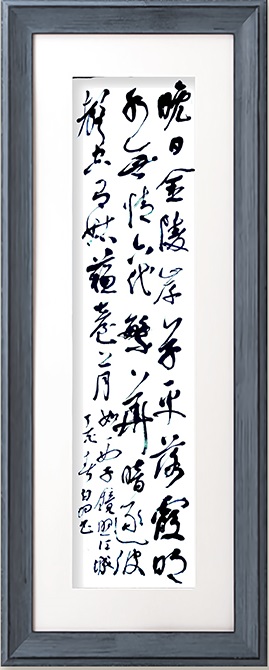 晚日金陵岸草平落霞明
水無情六代繁華暗逐波
聲空有姑蘇臺上月
如西子鏡照江城
丁亥春